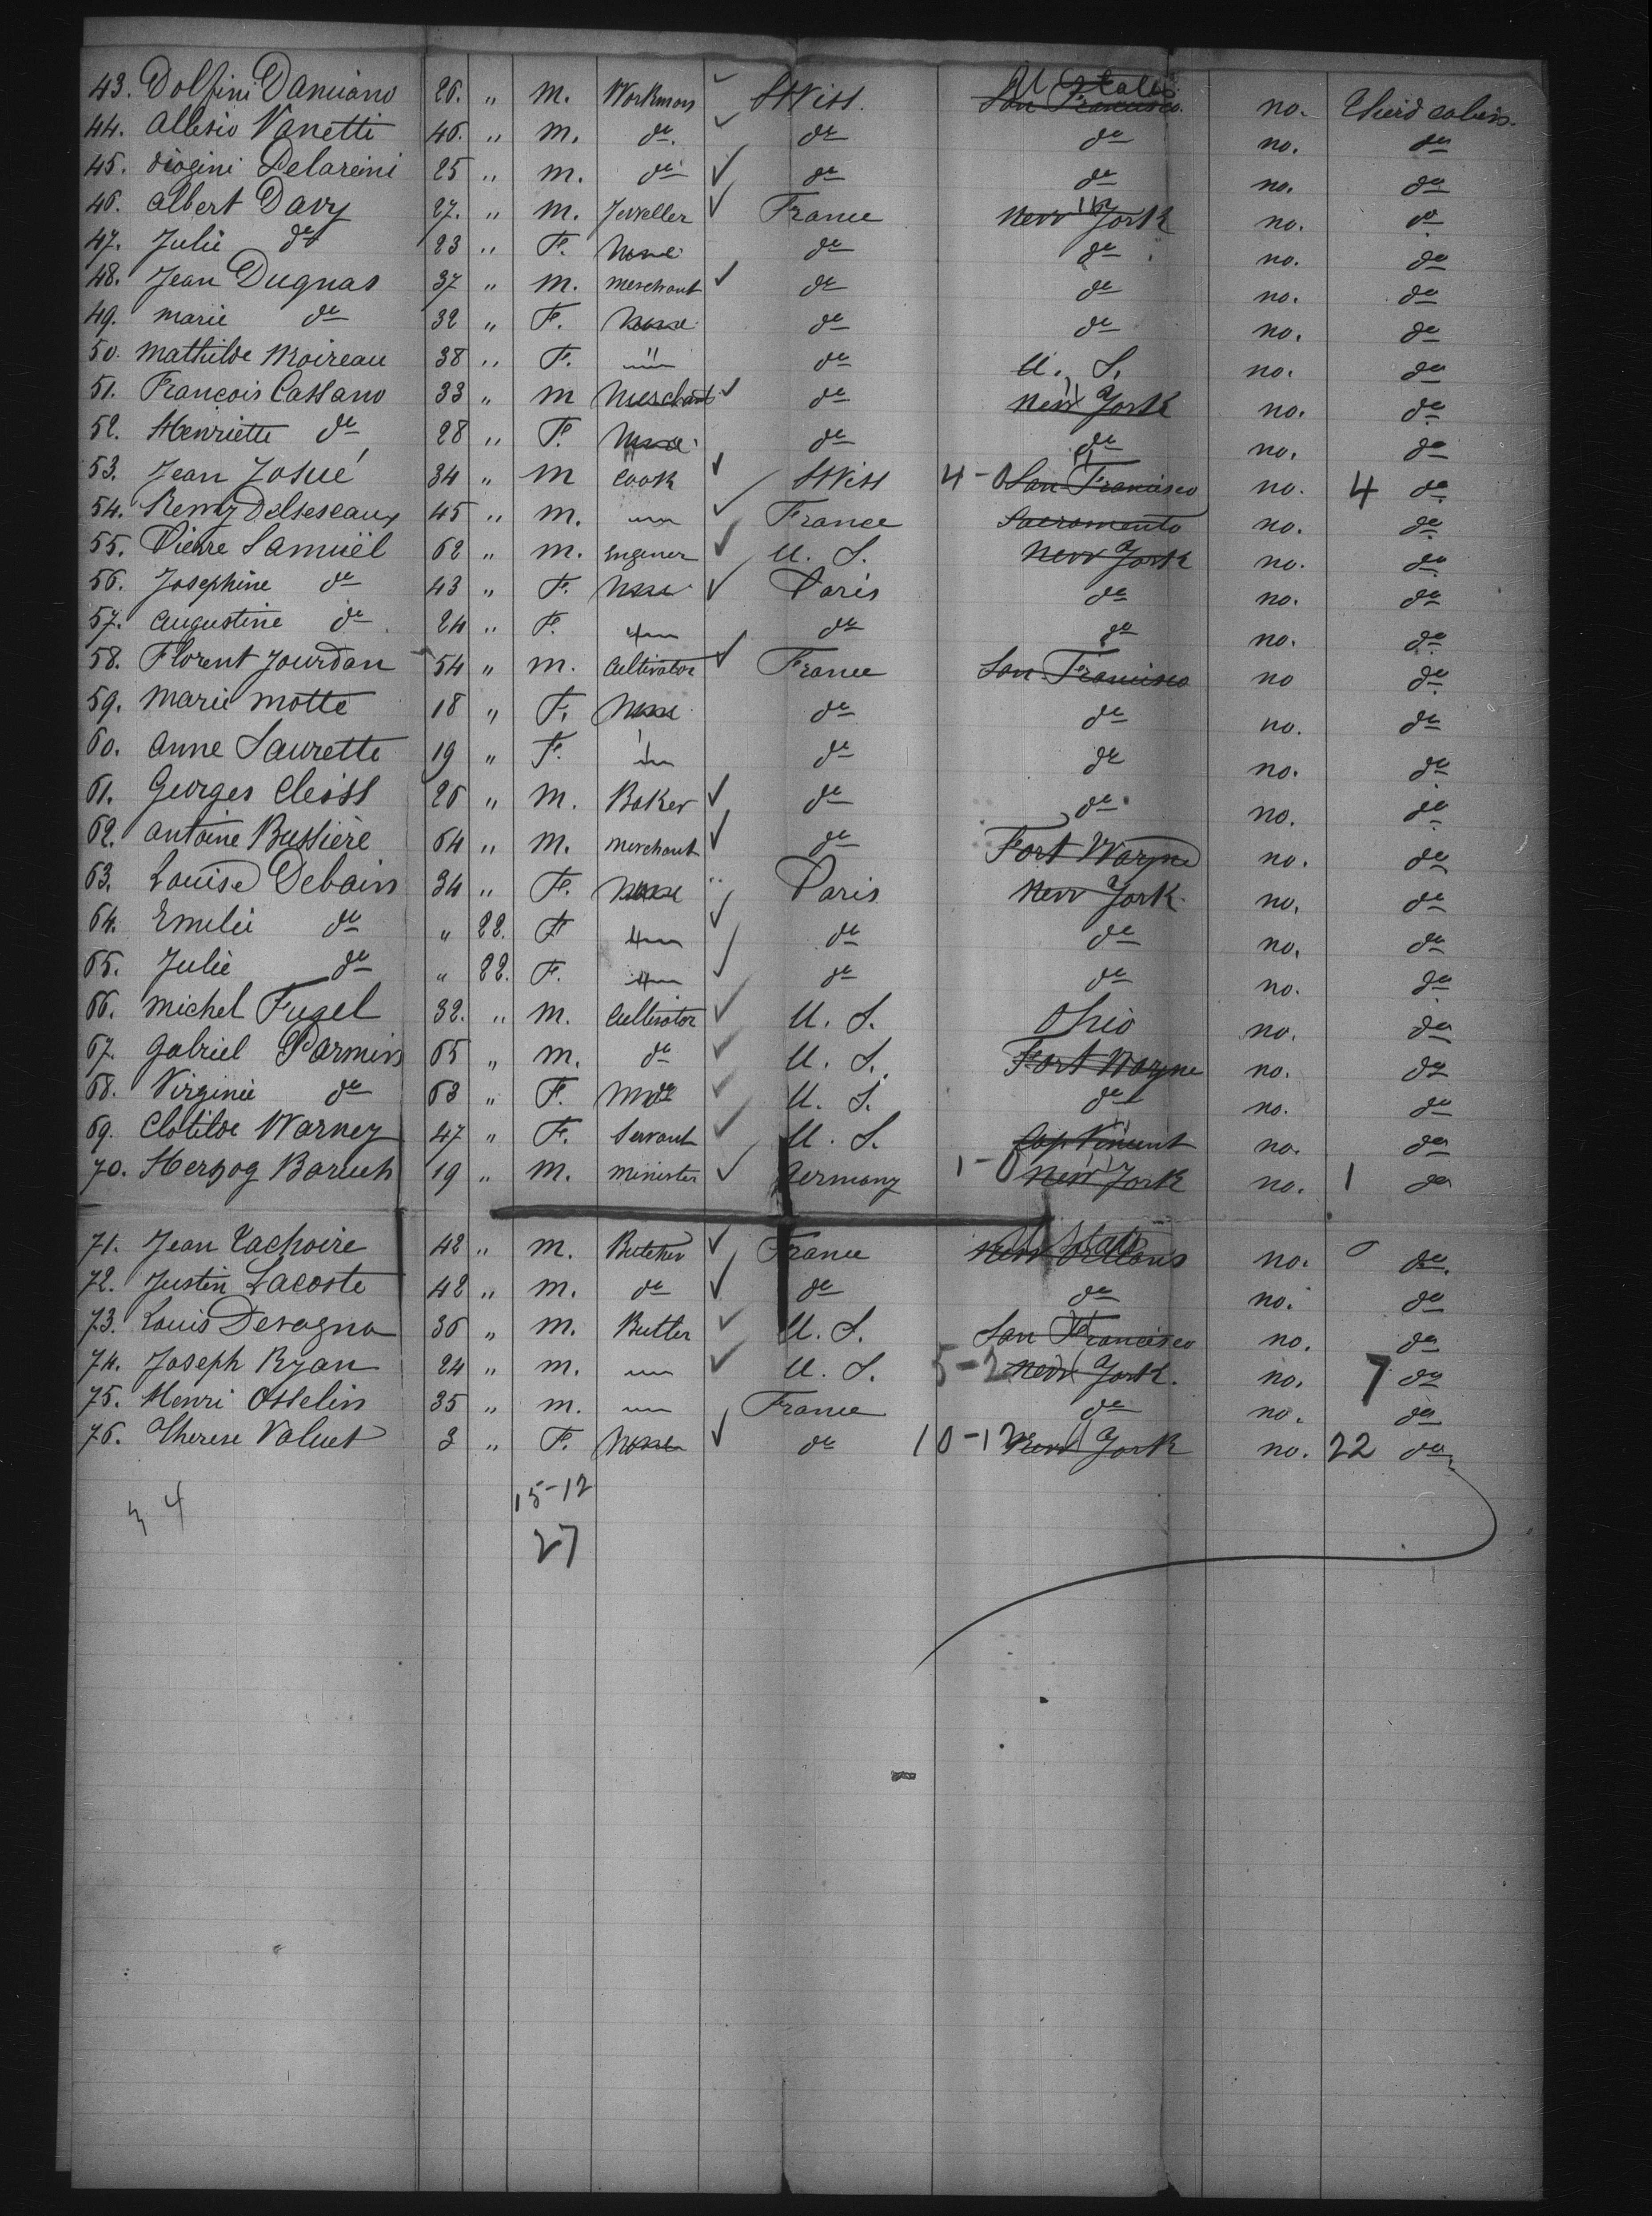 43. Dolfini Damiano 26. " M. Workman ✓ Swiss. U States San Francisco. no. Third cabin.
44. Allesio Vanetti 46. " M. do. ✓ do do no. do
45. Diogini Pelareini 25 " M. do ✓ do do no. do
46. Albert Davy 27. " M. Jeweller ✓ France New York no. do
47. Julie do 23 " F. None do do no. do
48. Jean Dugnas 37 " M. Merchant ✓ do do no. do
49. Marie do 32 " F. None do do no. do
50. Mathilde Moireau 38 " F. " do U. S. no. do
51. François Cassano 33 " M Merchant ✓ do New York no. do
52. Henriette do 28 " F. None do do no. do
53. Jean Josué 34 " M Cook ✓ Swiss 4-0 San Francisco no. 4 do
54. Remy Delseseaux 45 " M. — ✓ France Sacramento no. do
55. Pierre Samuël 62 " M. Engener ✓ U. S. New York no. do
56. Josephine do 43 " F. None ✓ Paris do no. do
57. Augustine do 24 " F. " do do no. do
58. Florent Jourdan 54 " M. Cultivator ✓ France San Francisco no do
59. Marie Motte 18 " F. None do do no. do
60. Anne Laurette 19 " F. " do do no. do
61. Georges Cleiss 26 " M. Baker ✓ do do no. do
62. Antoine Bussière 64 " M. Merchant ✓ do Fort Wayne no. do
63. Louise Debain 34 " F. None Paris New York no. do
64. Emilie do " 22. F " ✓ do do no. do
65. Julie do " 22. F. " ✓ do do no. do
66. Michel Fugel 32. " M. Cultivator ✓ U. S. Ohio no. do
67. Gabriel Parmin 65 " M. do ✓ U. S. Fort Wayne no. do
68. Virginie do 63 " F. ✓ U. S. do no. do
69. Clotilde Warney 47 " F. Servant ✓ U. S. Cap Vincent no. do
70. Herzog Baruch 19 " M. Minister ✓ Germany 1-0 New York no. 1 do
71. Jean Lachoire 42 " M. Butcher ✓ France U States New Orleans no. 0 do.
72. Justin Lacoste 42 " M. do ✓ do do no. do
73. Louis Devagna 36 " M. Butler ✓ U. S. San Francisco no. do
74. Joseph Ryan 24 " M. — ✓ U. S. 5-2 New York. no. 7 do
75. Henri Osselin 35 " M. — France do no. do
76. Therese Valuet 3 " F. None ✓ do 10-12 New York no. 22 do
15-12
27